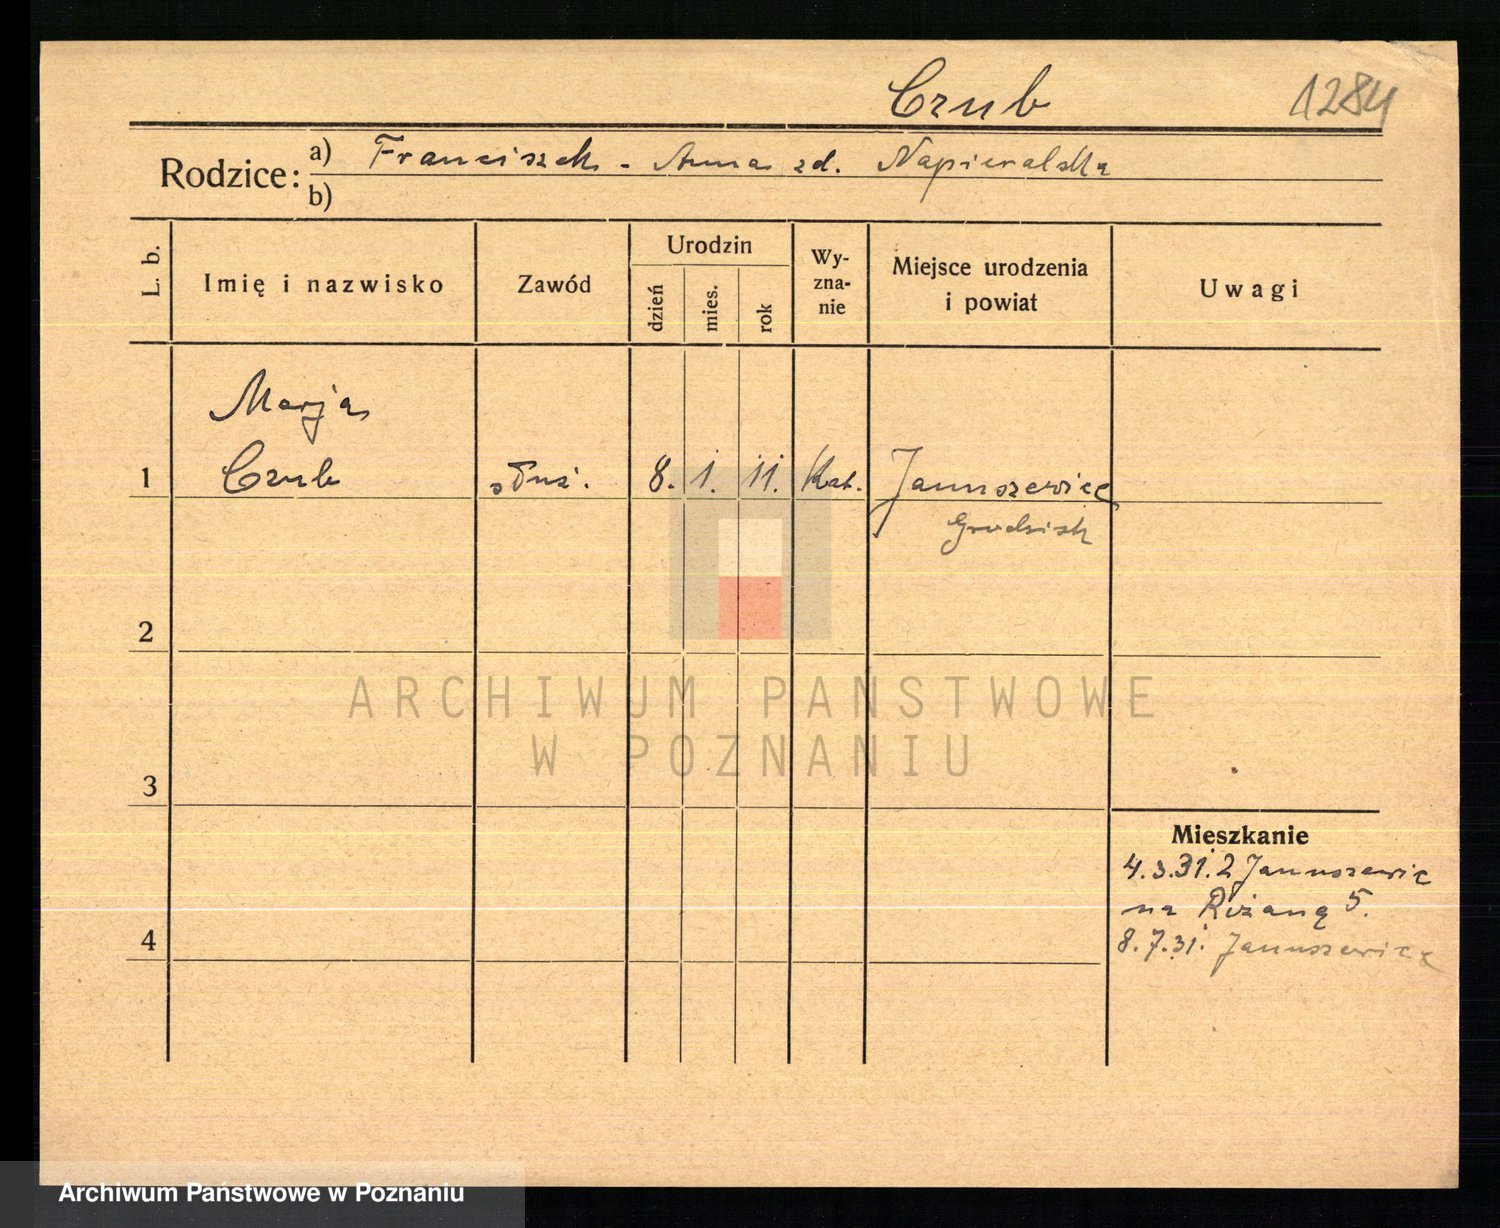 Czub
1284
Rodzice: a) Franciszek - Anna zd. Napieralska
b)
L. b.
Imię i nazwisko
Zawód
Urodzin
dzień
mies.
rok
Wy-
zna-
nie
Miejsce urodzenia
i powiat
Uwagi
Marja
1 Czub służ. 8. 1. 11. Kat. Januszewice
Grodzisk
2
3
4
Mieszkanie
4.3.31. z Januszewic
na Różaną 5.
8.7.31. Januszewice
ARCHIWUM PAŃSTWOWE
W POZNANIU
Archiwum Państwowe w Poznaniu